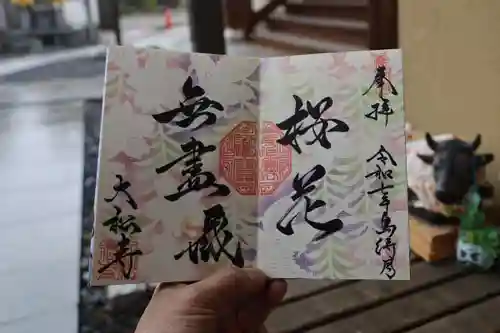 奉拝
令和七年
桜花
無盡蔵
大松寺